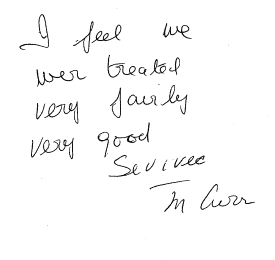 I feel we
wer treated
very fairly
very good
Sevivec
M Curr